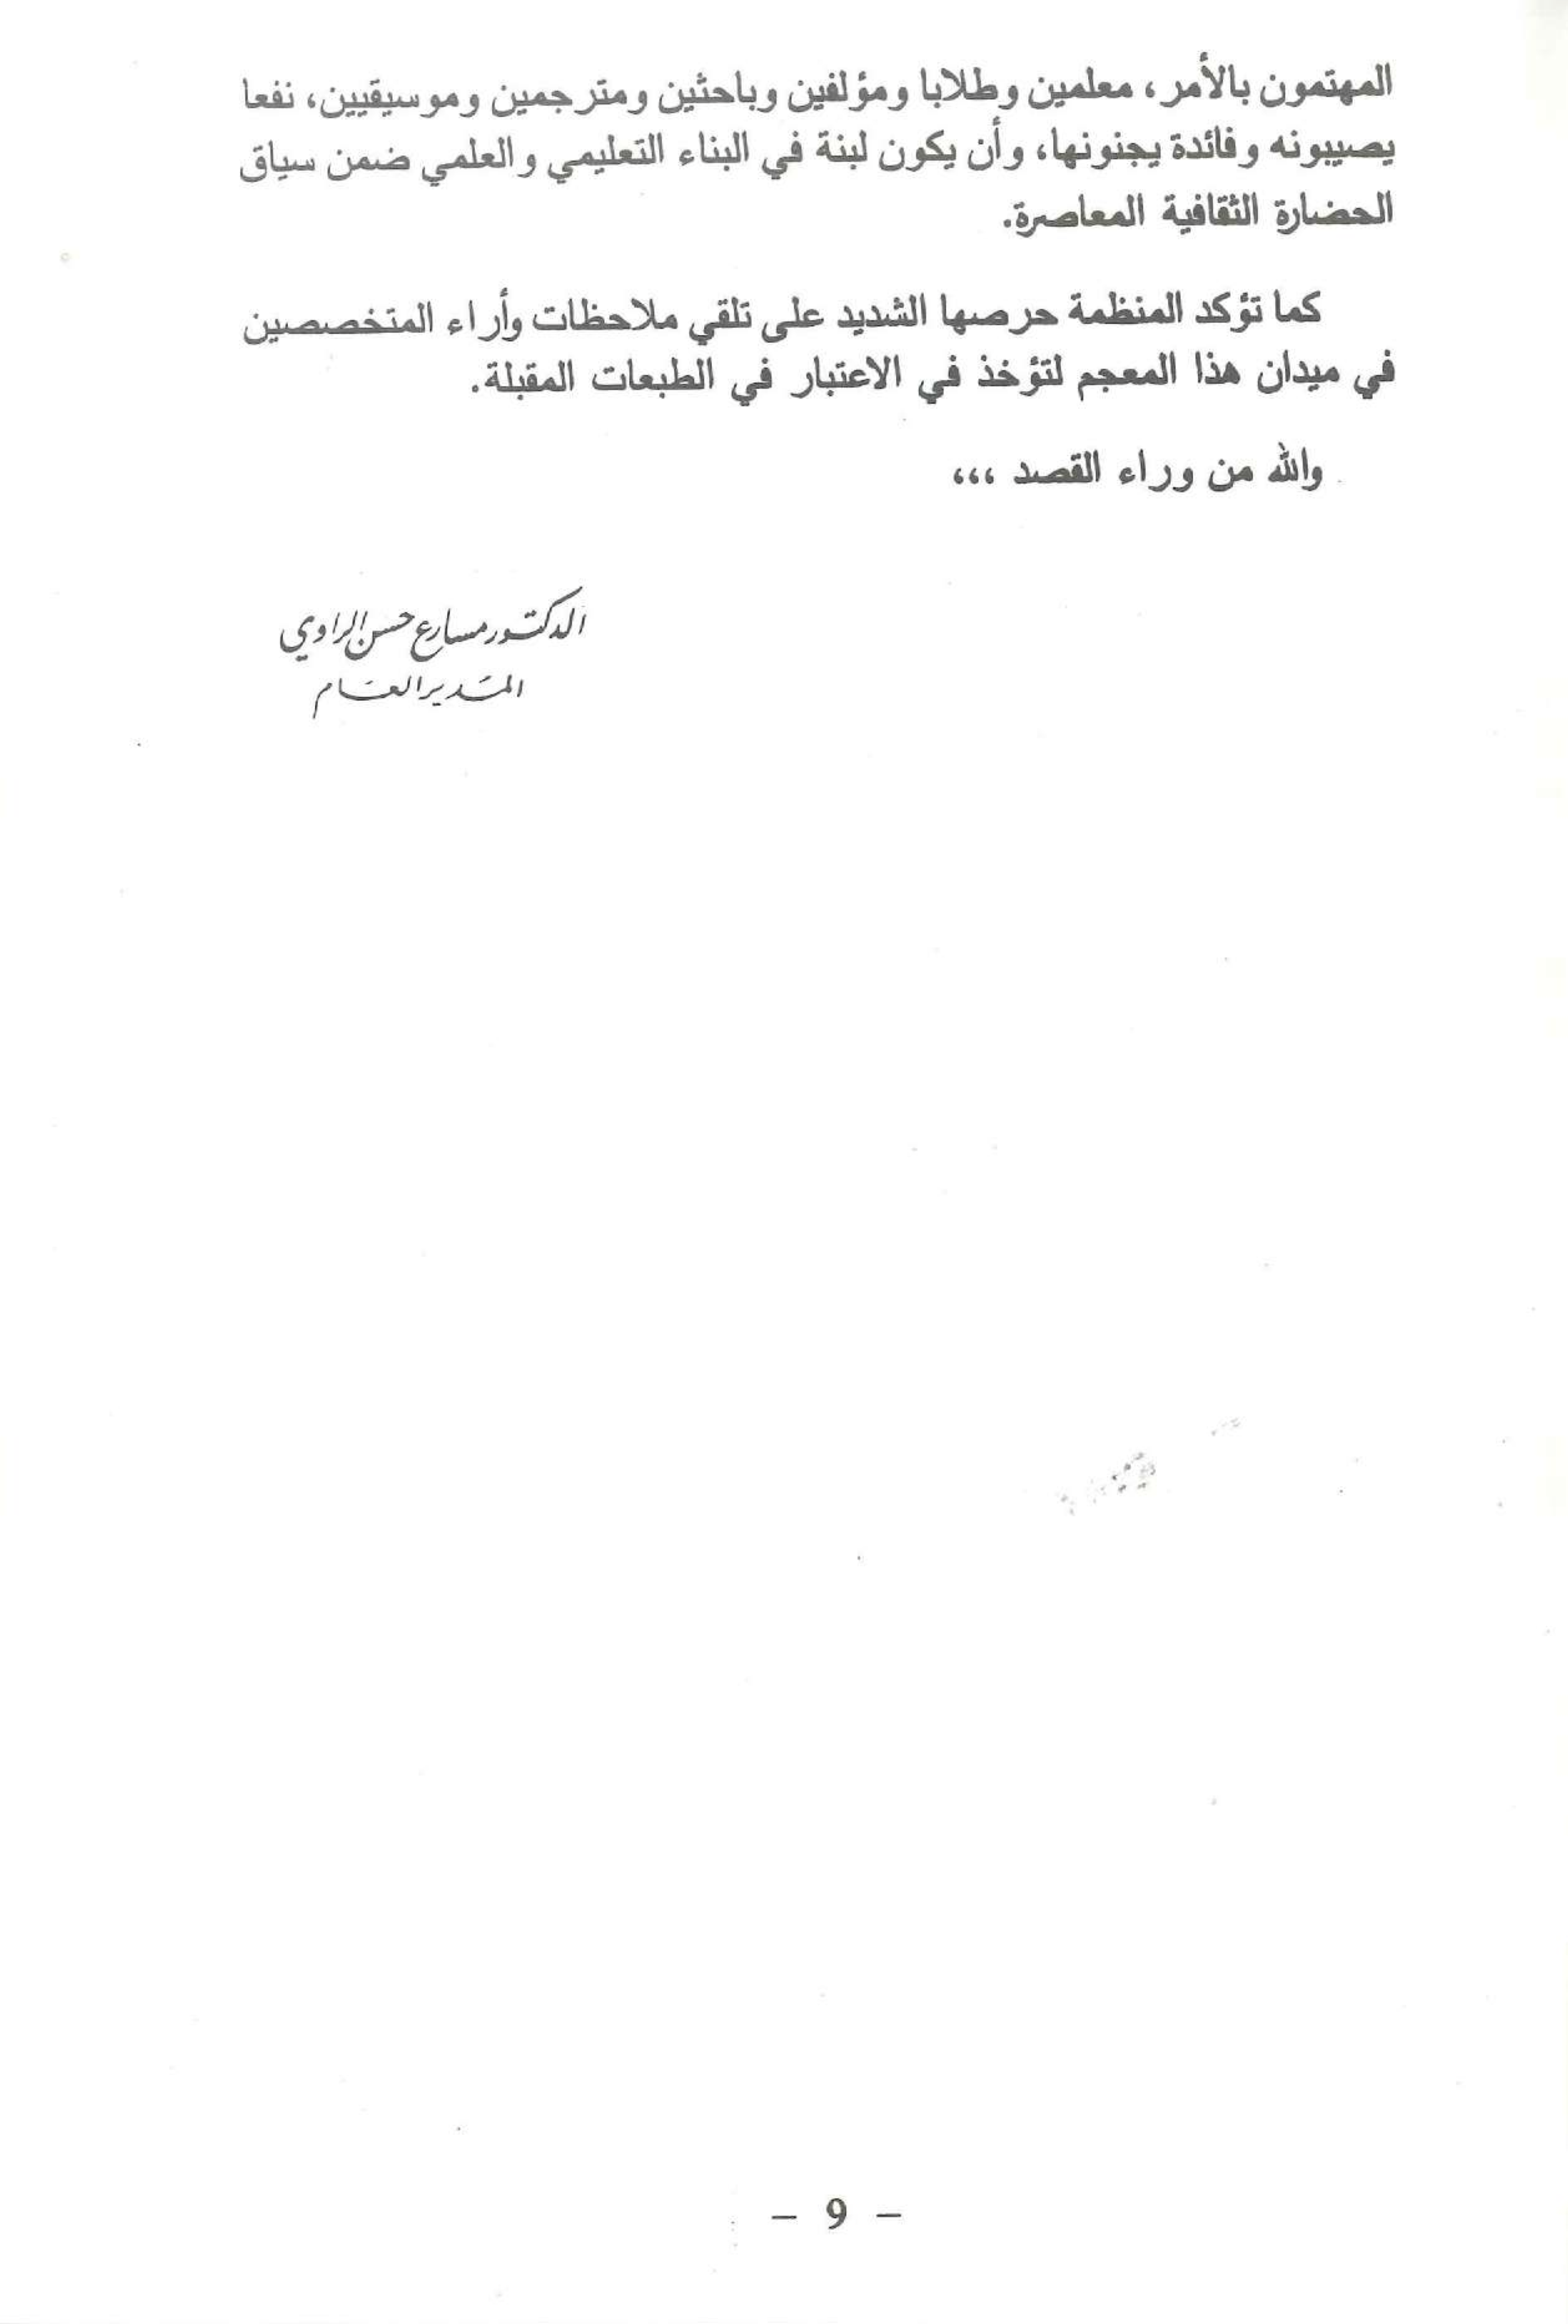 المهتمون بالأمر، معلمين وطلابا ومؤلفين وباحثين ومترجمين وموسيقيين، نفعا
يصيبونه وفائدة يجنونها، وأن يكون لبنة في البناء التعليمي والعلمي ضمن سياق
الحضارة الثقافية المعاصرة.
كما تؤكد المنظمة حرصها الشديد على تلقي ملاحظات وأراء المتخصصين
في ميدان هذا المعجم لتؤخذ في الاعتبار في الطبعات المقبلة.
والله من وراء القصد ،،،
الدكتور مسارع حسن الراوي
المدير العام
- 9 -